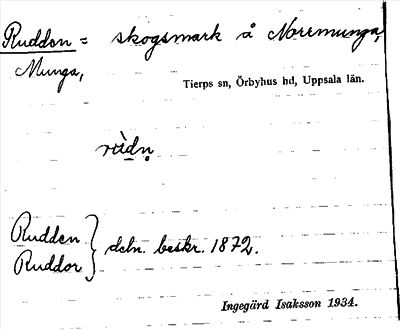 Rudden = skogsmark å Norrmunga,
Munga,
Tierps sn, Örbyhus hd, Uppsala län.
rùdṇ
Rudden
Ruddor } deln. beskr. 1872.
Ingegärd Isaksson 1934.